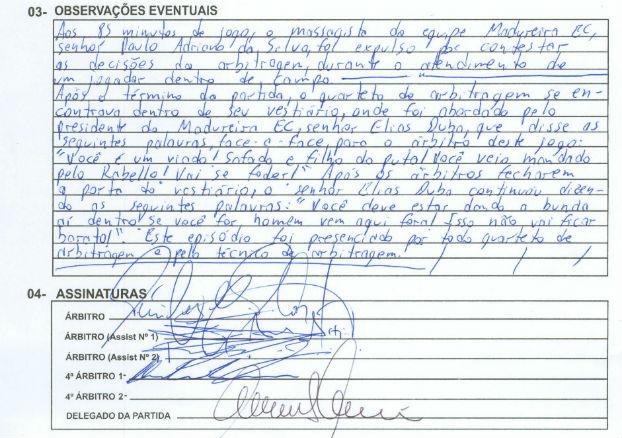 03- OBSERVAÇÕES EVENTUAIS
Aos 85 minutos de jogo, o massagista da equipe Madureira EC,
senhor Paulo Adriano da Silva, foi expulso por contestar
as decisões da arbitragem, durante o atendimento de
um jogador dentro de campo.
Após o término da partida, o quarteto de arbitragem se en-
contrava dentro de seu vestiário, onde foi abordado pelo
presidente do Madureira EC, senhor Elias Duba, que disse as
seguintes palavras, face-a-face para o árbitro deste jogo:
"Você é um viado! Safado e filho da puta! Você veio mandado
pelo Rabello! Vai se foder!" Após os árbitros fecharem
a porta do vestiário, o senhor Elias Duba continuou dizen-
do as seguintes palavras: "Você deve estar dando a bunda
aí dentro! Se você for homem vem aqui fora! Isso não vai ficar
barato!". Este episódio foi presenciado por todo quarteto de
arbitragem e pelo técnico de arbitragem.
04- ASSINATURAS
ÁRBITRO
ÁRBITRO (Assist Nº 1)
ÁRBITRO (Assist Nº 2)
4º ÁRBITRO 1-
4º ÁRBITRO 2-
DELEGADO DA PARTIDA